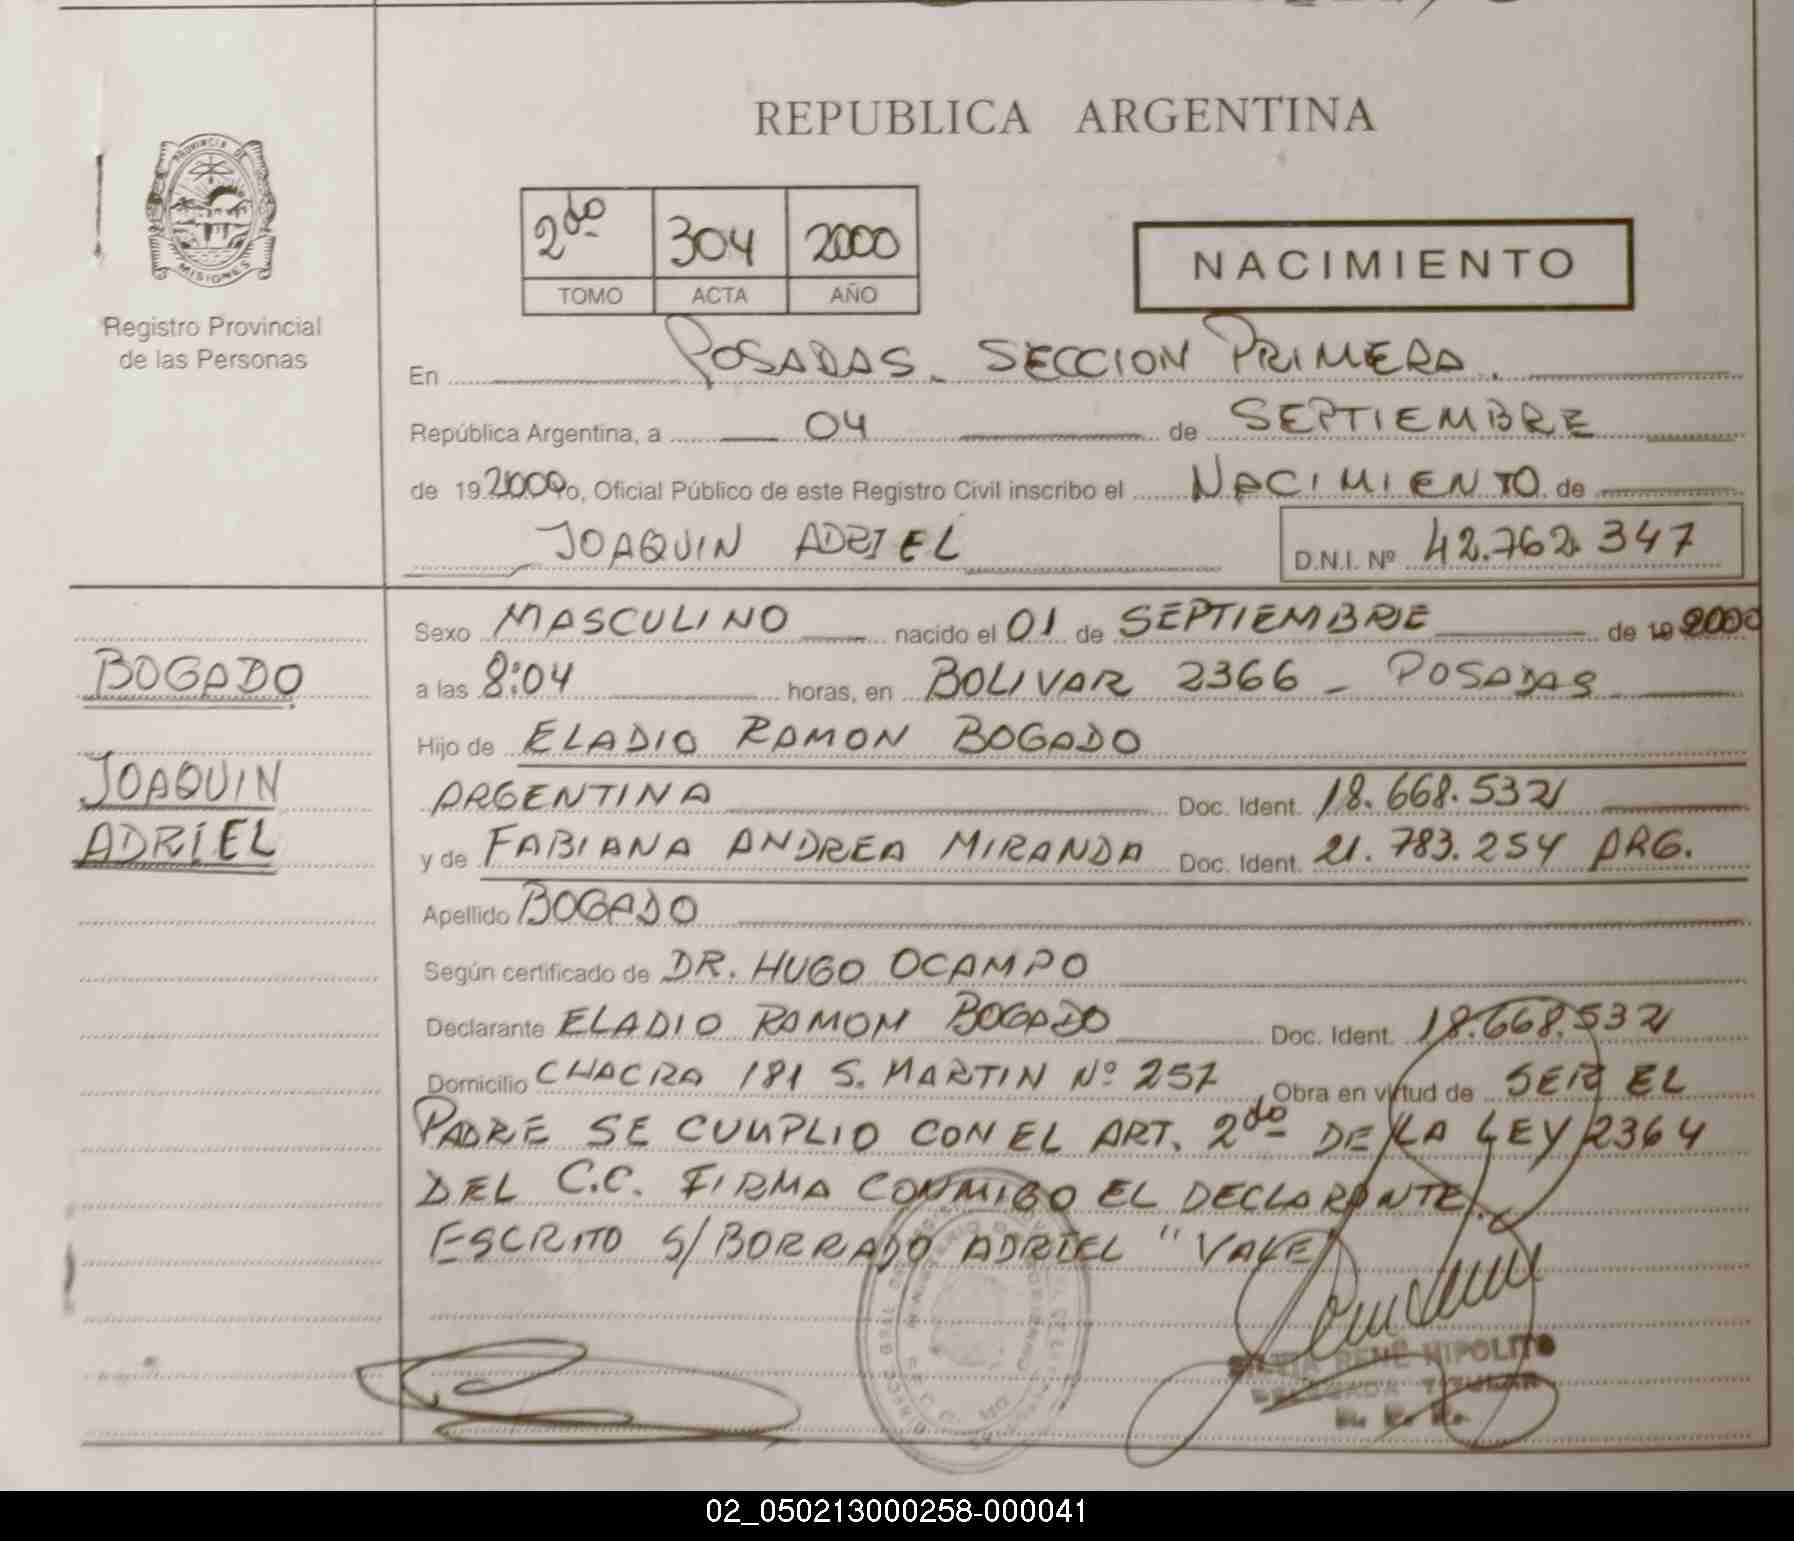 REPUBLICA ARGENTINA
PROVINCIA DE
MISIONES
Registro Provincial
de las Personas
2do 304 2000
TOMO ACTA AÑO
NACIMIENTO
En POSADAS. SECCION PRIMERA.
República Argentina, a 04 de SEPTIEMBRE
de 19 2000 yo, Oficial Público de este Registro Civil inscribo el NACIMIENTO de
JOAQUIN ADRIEL D.N.I. Nº 42.762.347
Sexo MASCULINO nacido el 01 de SEPTIEMBRE de 19 2000
BOGADO
a las 8:04 horas, en BOLIVAR 2366 - POSADAS
Hijo de ELADIO RAMON BOGADO
JOAQUIN
ARGENTINA Doc. Ident. 18.668.532
ADRIEL
y de FABIANA ANDREA MIRANDA Doc. Ident. 21.783.254 ARG.
Apellido BOGADO
Según certificado de DR. HUGO OCAMPO
Declarante ELADIO RAMON BOGADO Doc. Ident. 18.668.532
Domicilio CHACRA 181 S. MARTIN Nº 257 Obra en virtud de SER EL
PADRE SE CUMPLIO CON EL ART. 2do DE LA LEY 2364
DEL C.C. FIRMA CONMIGO EL DECLARANTE.
ESCRITO S/BORRADO ADRIEL "VALE"
SILVIA RENÉ HIPOLITO
DELEGADA TITULAR
02_050213000258-000041